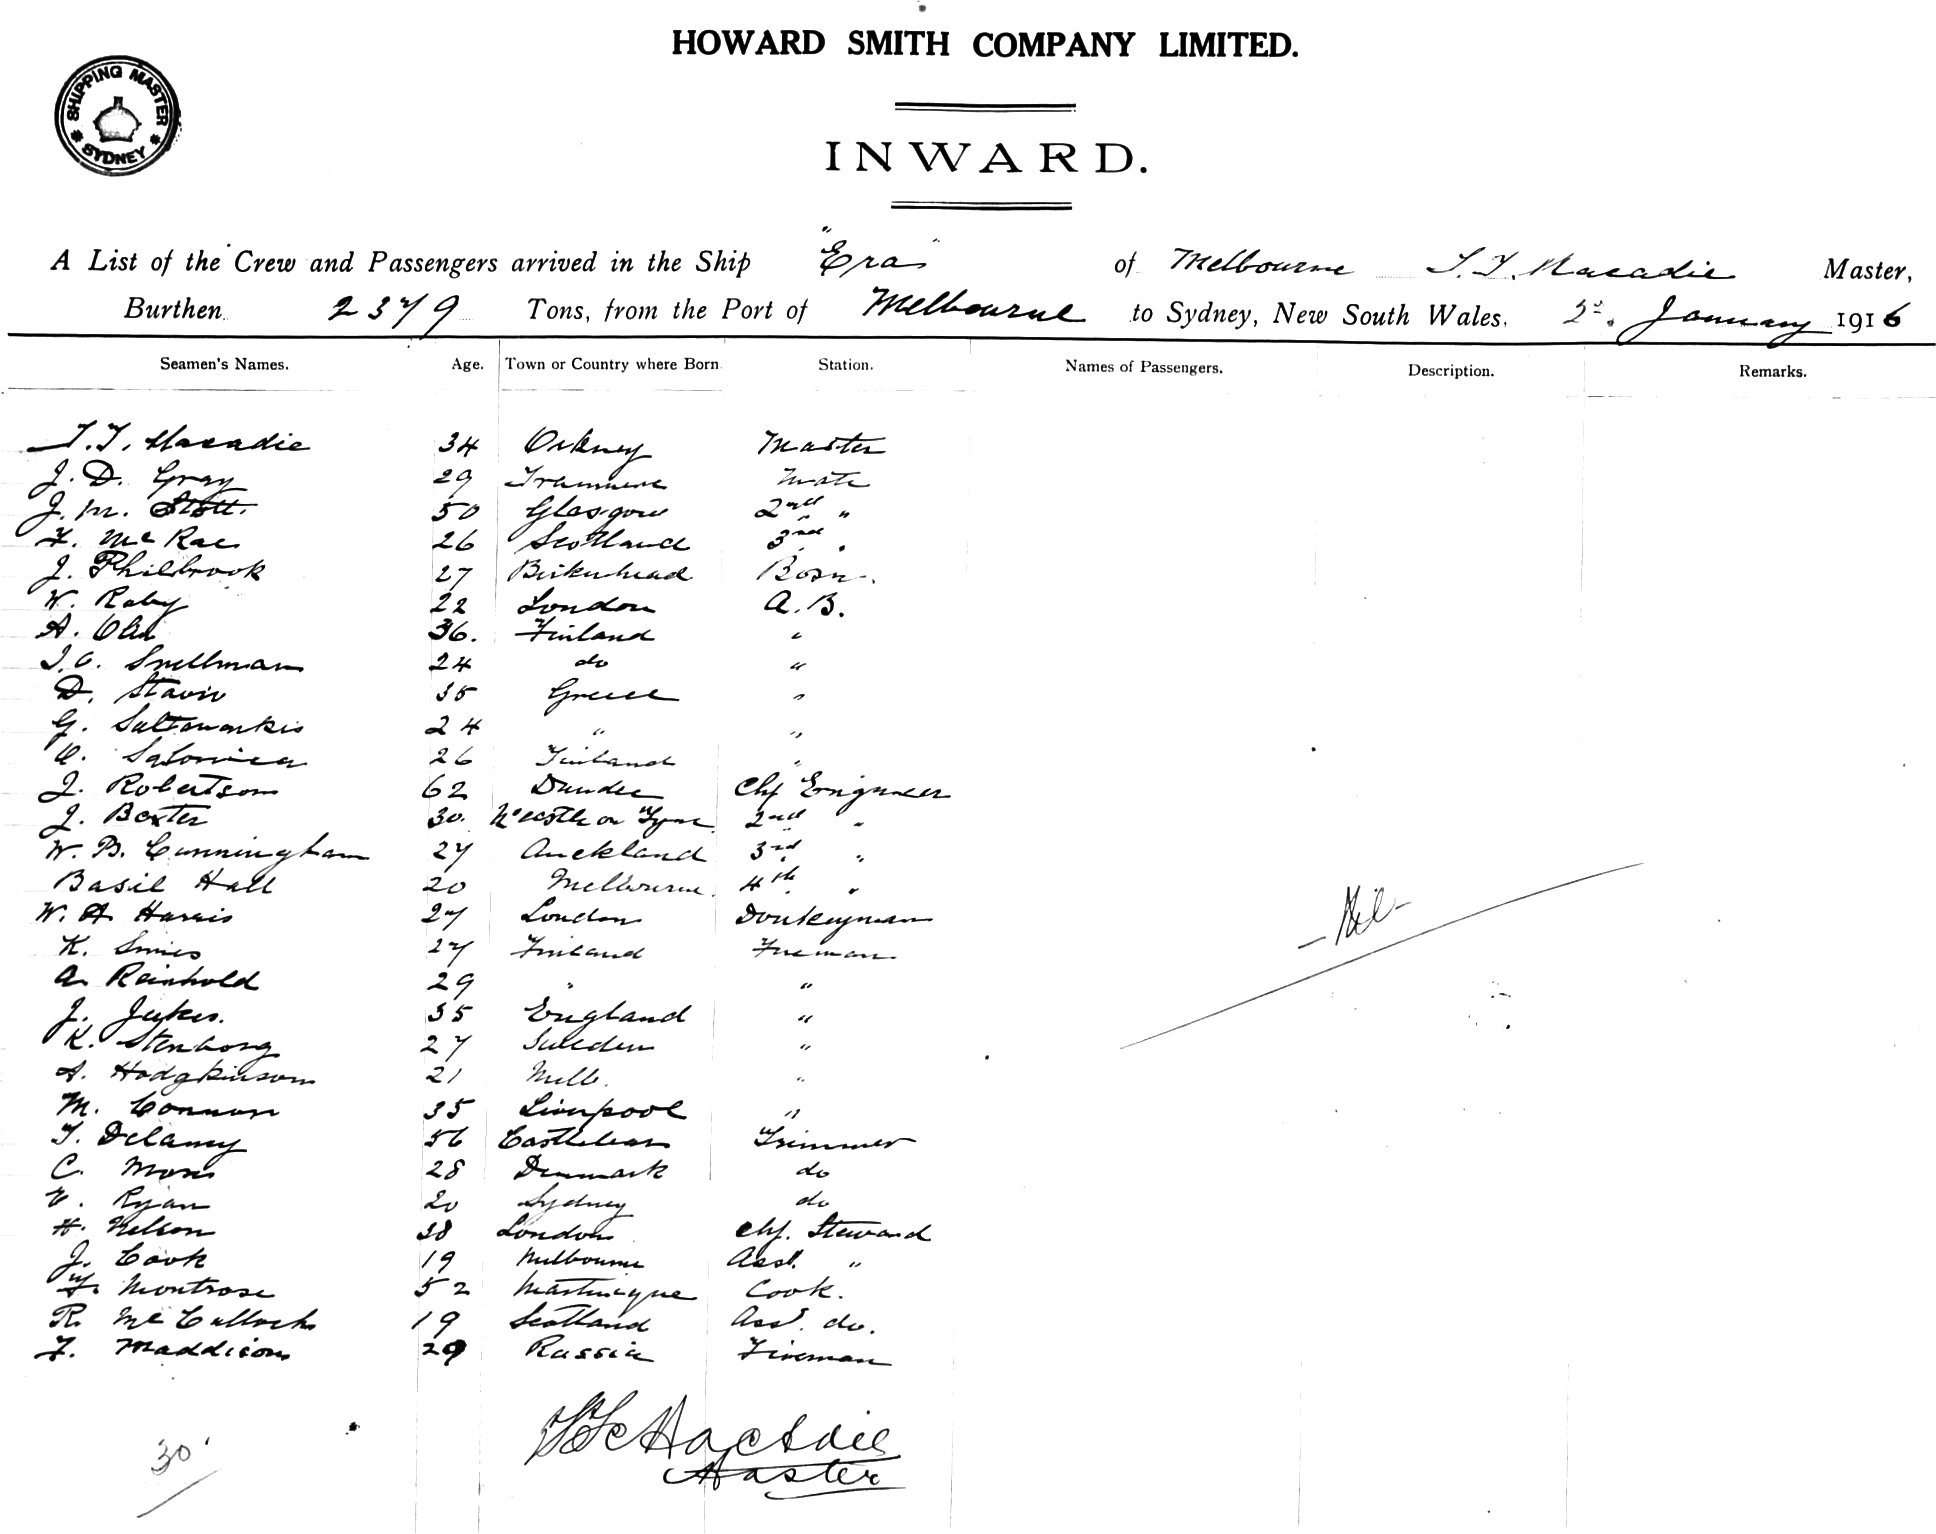 HOWARD SMITH COMPANY LIMITED.
SHIPPING MASTER SYDNEY
INWARD.
A List of the Crew and Passengers arrived in the Ship "Era" of Melbourne T. T. Macadie Master,
Burthen 2379 Tons, from the Port of Melbourne to Sydney, New South Wales, 2d. January 1916
Seamen's Names. Age. Town or Country where Born Station. Names of Passengers. Description. Remarks.
T. T. Macadie 34 Orkney Master
J. D. Gray 29 Tranmere Mate
J. M. Stott. 50 Glasgow 2nd "
F. McRae 26 Scotland 3rd "
J. Philbrook 27 Birkenhead Bosn.
W. Raby 22 London A.B.
A. 36. Finland "
J. O. Snellman 24 do "
D. Stavir 35 Greece "
G. 24 " "
O. 26 Finland "
J. Robertson 62 Dundee Chf Engineer
J. Baxter 30. N'castle on Tyne 2nd "
W. B. Cunningham 27 Auckland 3rd "
Basil Hall 20 Melbourne. 4th "
W. A. Harris 27 London Donkeyman
K. 27 Finland Fireman
A. Reinhold 29 " "
J. Jukes. 35 England "
K. Stenborg 27 Sweden "
A. Hodgkinson 21 Melb. "
M. Connor 35 Liverpool "
T. Delaney 56 Trimmer
C. Mons 28 Denmark do
E. Ryan 20 Sydney do
H. Nelson 38 London Chf. Steward
J. Cook 19 Melbourne Asst. "
F. Montrose 52 Martinique Cook.
R. McCulloch 19 Scotland Asst. do.
F. Maddison 29 Russia Fireman
- Nil -
Macadie
Master
30